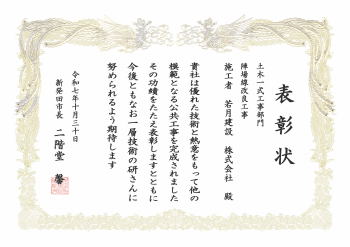 表彰状
土木一式工事部門
陣場線改良工事
施工者 若月建設 株式会社 殿
貴社は優れた技術と熱意をもって他の
模範となる公共工事を完成されました
その功績をたたえ表彰しますとともに
今後ともなお一層技術の研さんに
努められるよう期待します
令和七年十月三十日
新発田市長 二階堂 馨